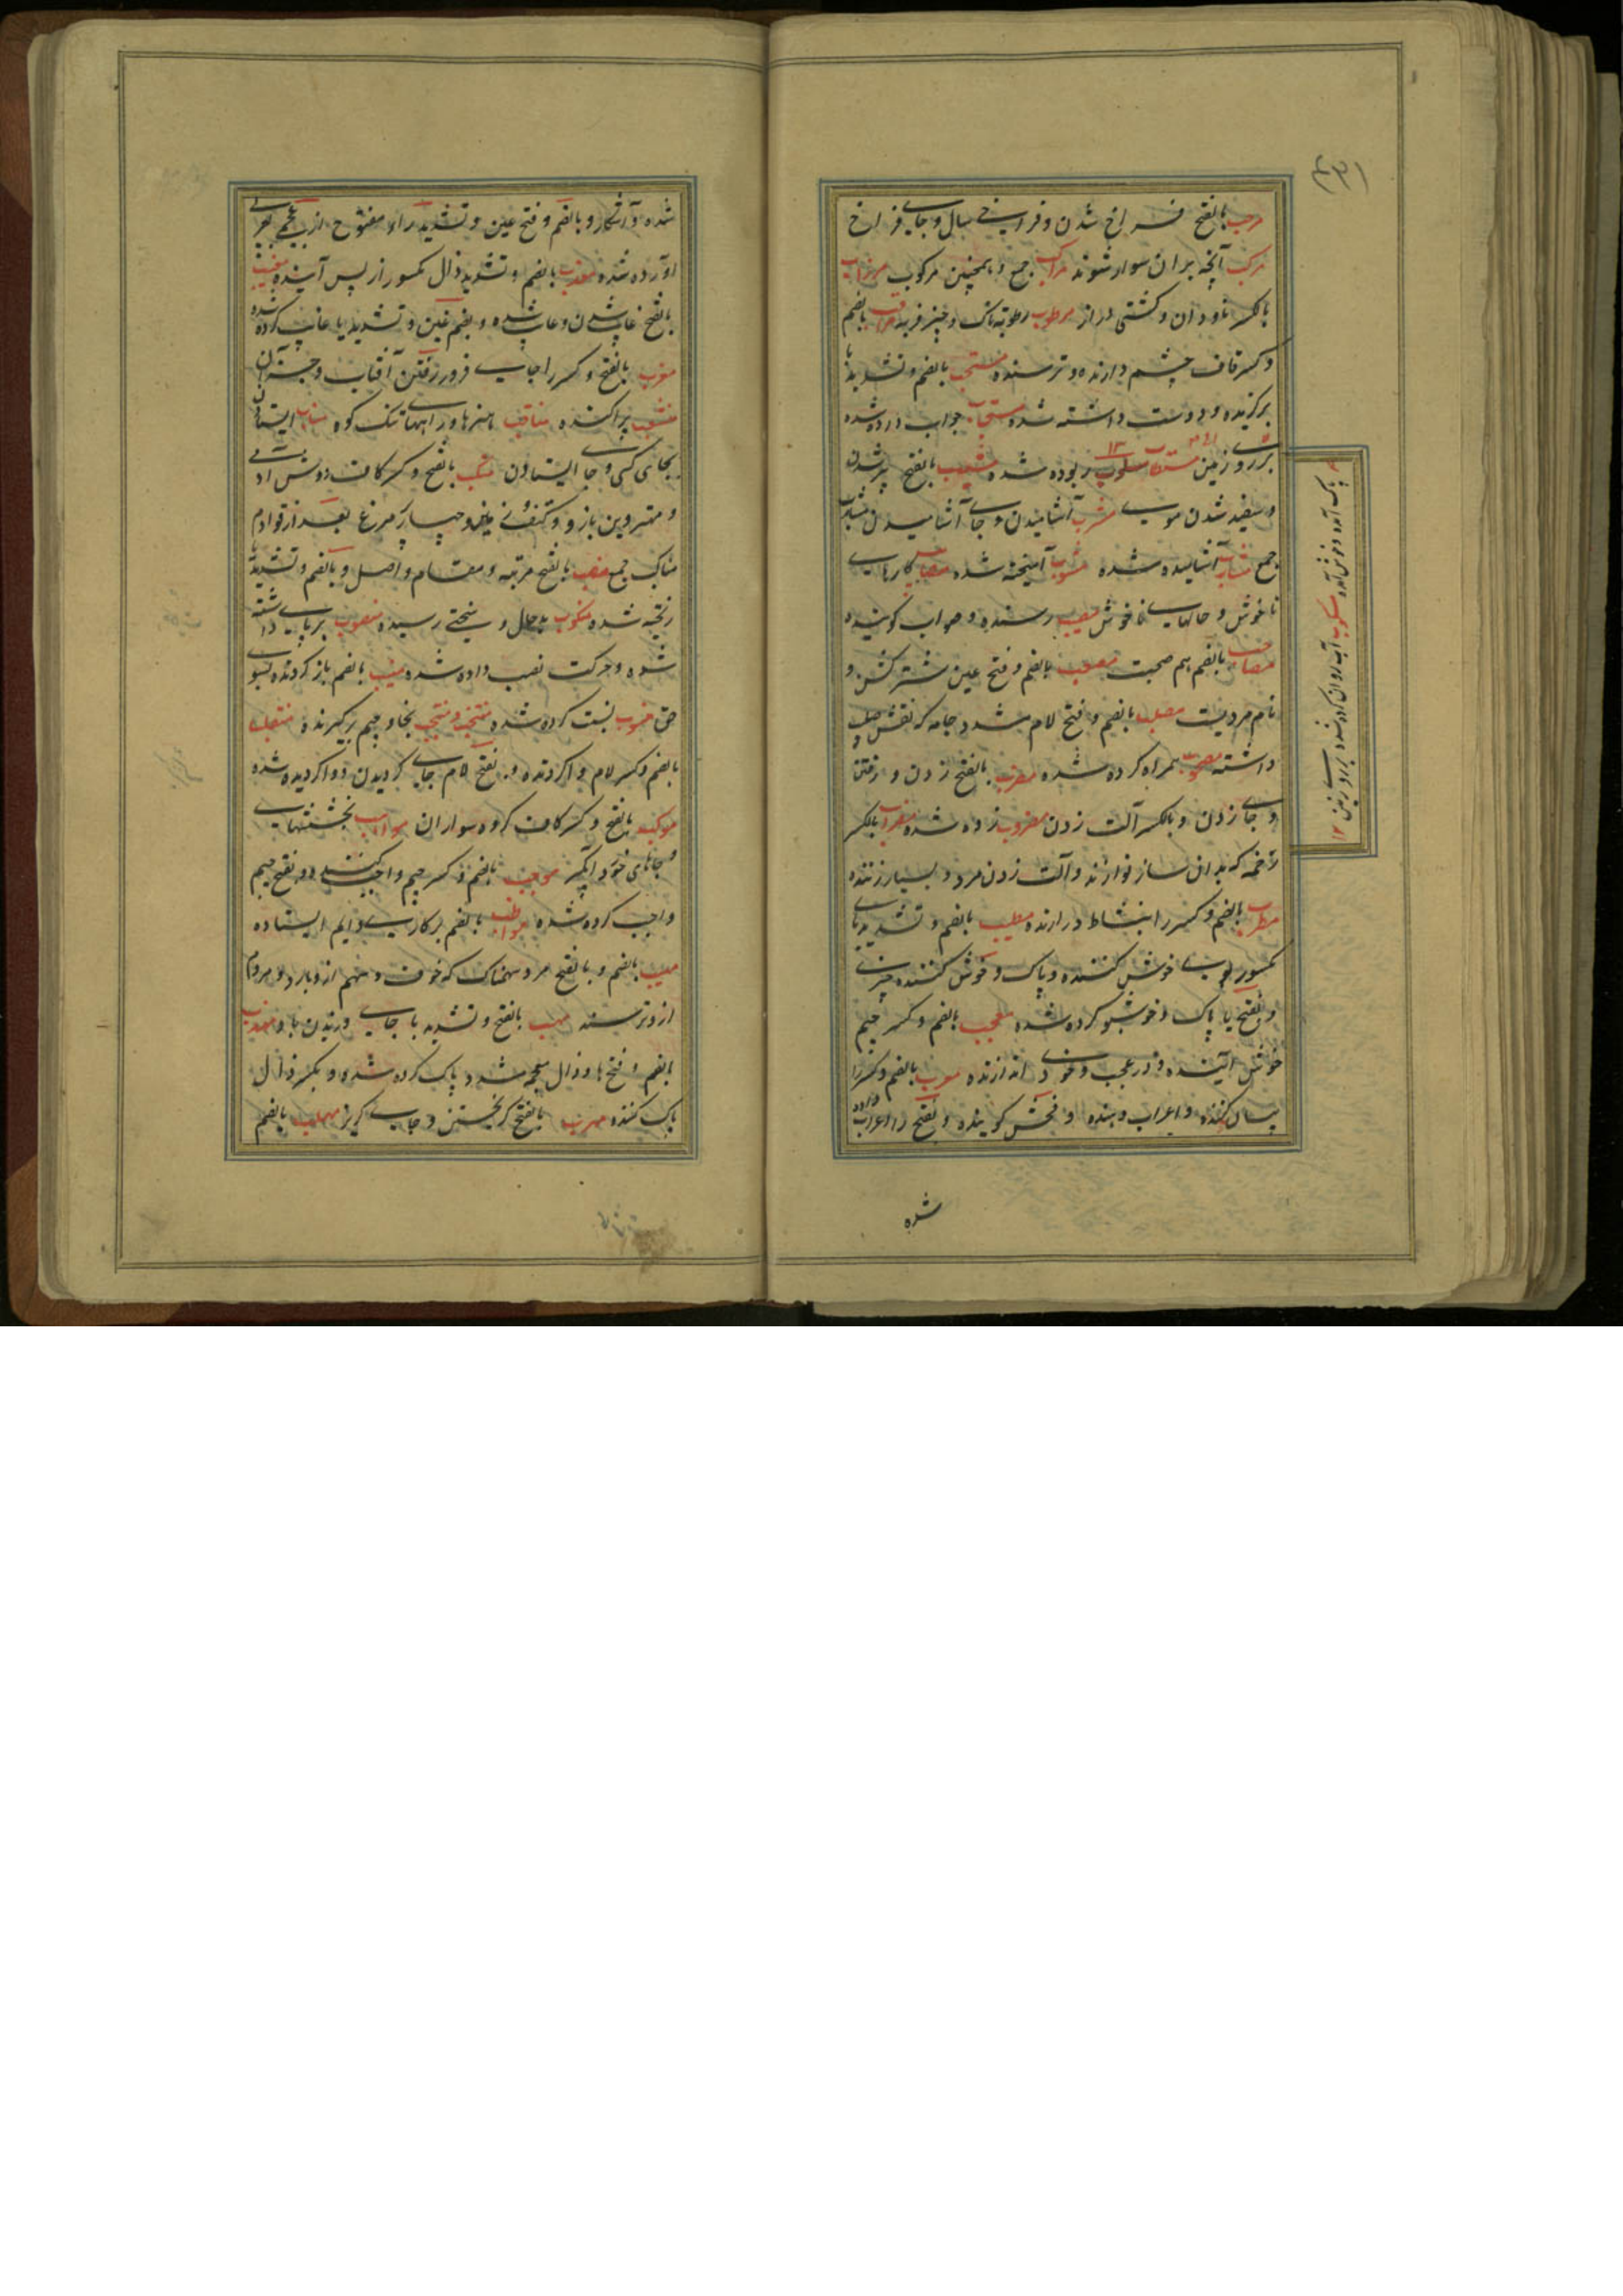 مرحب بالفتح فراخ شدن و فراخی سال و جای فراخ
مرکب آنچه بران سوار شوند مراکب جمع و همچنین مرکوب مرزاب
بالکسر ناودان و کشتی دراز مرطوب رطوبتناک و چیز فربه مراقب بالضم
و کسر قاف چشم دارنده و ترسنده مستحب بالضم و تشدید با
برگزیده و دوست داشته شده مستجاب جواب داده شده
بر روی زمین مسلوب ربوده شده مشیب بالفتح پیر شدن
و سفید شدن موی مشرب آشامیدن و جای آشامیدن مشارب
جمع مشارب آشامیده شده مشوب آمیخته شده مصائب کارهای
ناخوش و حالهای ناخوش مصیب رسنده و صواب گوینده
مصاحب بالضم هم صحبت مصعب بالضم و فتح عین شتر کش و
نام مردیست مصلب بالضم و فتح لام مشدد جامه که نقش صلیب
داشته مصحوب همراه کرده شده مضرب بالفتح زدن و رفتن
و جای زدن و بالکسر آلت زدن مضروب زده شده مضراب بالکسر
زخمه که بدان ساز نوازند و آلت زدن مرد و بسیار زننده
مطرب بالضم و کسر را بنشاط درارنده مطیب بالضم و تشدید یای
کمسور بوی خوش کننده و پاک و خوش کننده چیزی
و بفتح یا پاک و خوشبو کرده شده معجب بالضم و کسر جیم
خوش آینده و در عجب و خودی اندازنده معرب بالضم و کسر را
بیان کننده و اعراب دهنده و فحش گوینده و بفتح را اعراب داده
شده
پاک آمده و خوش آمده مسکوب آب روان کرده شده بر روی زمین ۱۲
شده و آشکار و بالضم و فتح عین و تشدید راء مفتوح از عجمی بعربی
آورده شده معقب بالضم و تشدید ذال کمسور از پس آینده مغیب
بالفتح غایب شدن و غایب شده و بضم غین و تشدید یا غایب کرده شده
مغرب بالفتح و کسر را جای فرو رفتن آفتاب و جز آن
منشعب پراکنده مناقب هنرها و راههای تنگ کوه مناب ایستادن
بجای کسی و جای ایستادن منکب بالفتح و کسر کاف دوش آدمی
و مهتر و بن بازو و کتف و چهار پر مرغ بعد از قوادم
مناکب جمع منصب بالفتح مرتبه و مقام و اصل و بالضم و تشدید با
ریخته شده منکوب بدحال و سختی رسیده منصوب برپای داشته
شده و حرکت نصب داده شده منیب بالضم باز گردنده بسوی
حق منسوب نسبت کرده شده منتخب و منتجب بخا و جیم برگیرنده منقلب
بالضم و کسر لام واگردنده و بفتح لام جای گردیدن و واگردیده شده
موکب بالفتح و کسر کاف گروه سواران مواهب بخششهای
و جاهای خورد آبگیر موجب بالضم و کسر جیم واجب کننده و بفتح جیم
واجب کرده شده مواظب بالضم بر کاری دایم ایستاده
مهیب بالضم و بالفتح مرد سهمناک که خوف و سهم ازو بارد و مردم
ازو ترسند مهب بالفتح و تشدید با جای وزیدن باد مهذب
بالضم و فتح ها و ذال معجمه مشدد پاک کرده شده و بکسر ذال
پاک کننده مهرب بالفتح گریختن و جای گریز مهلب بالضم